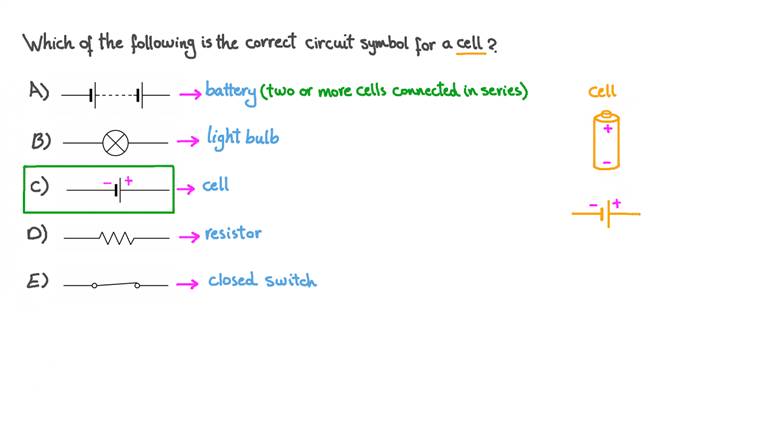 Which of the following is the correct circuit symbol for a cell?
A) battery (two or more cells connected in series)
B) light bulb
C) - + cell
D) resistor
E) closed switch
cell
+
-
- +